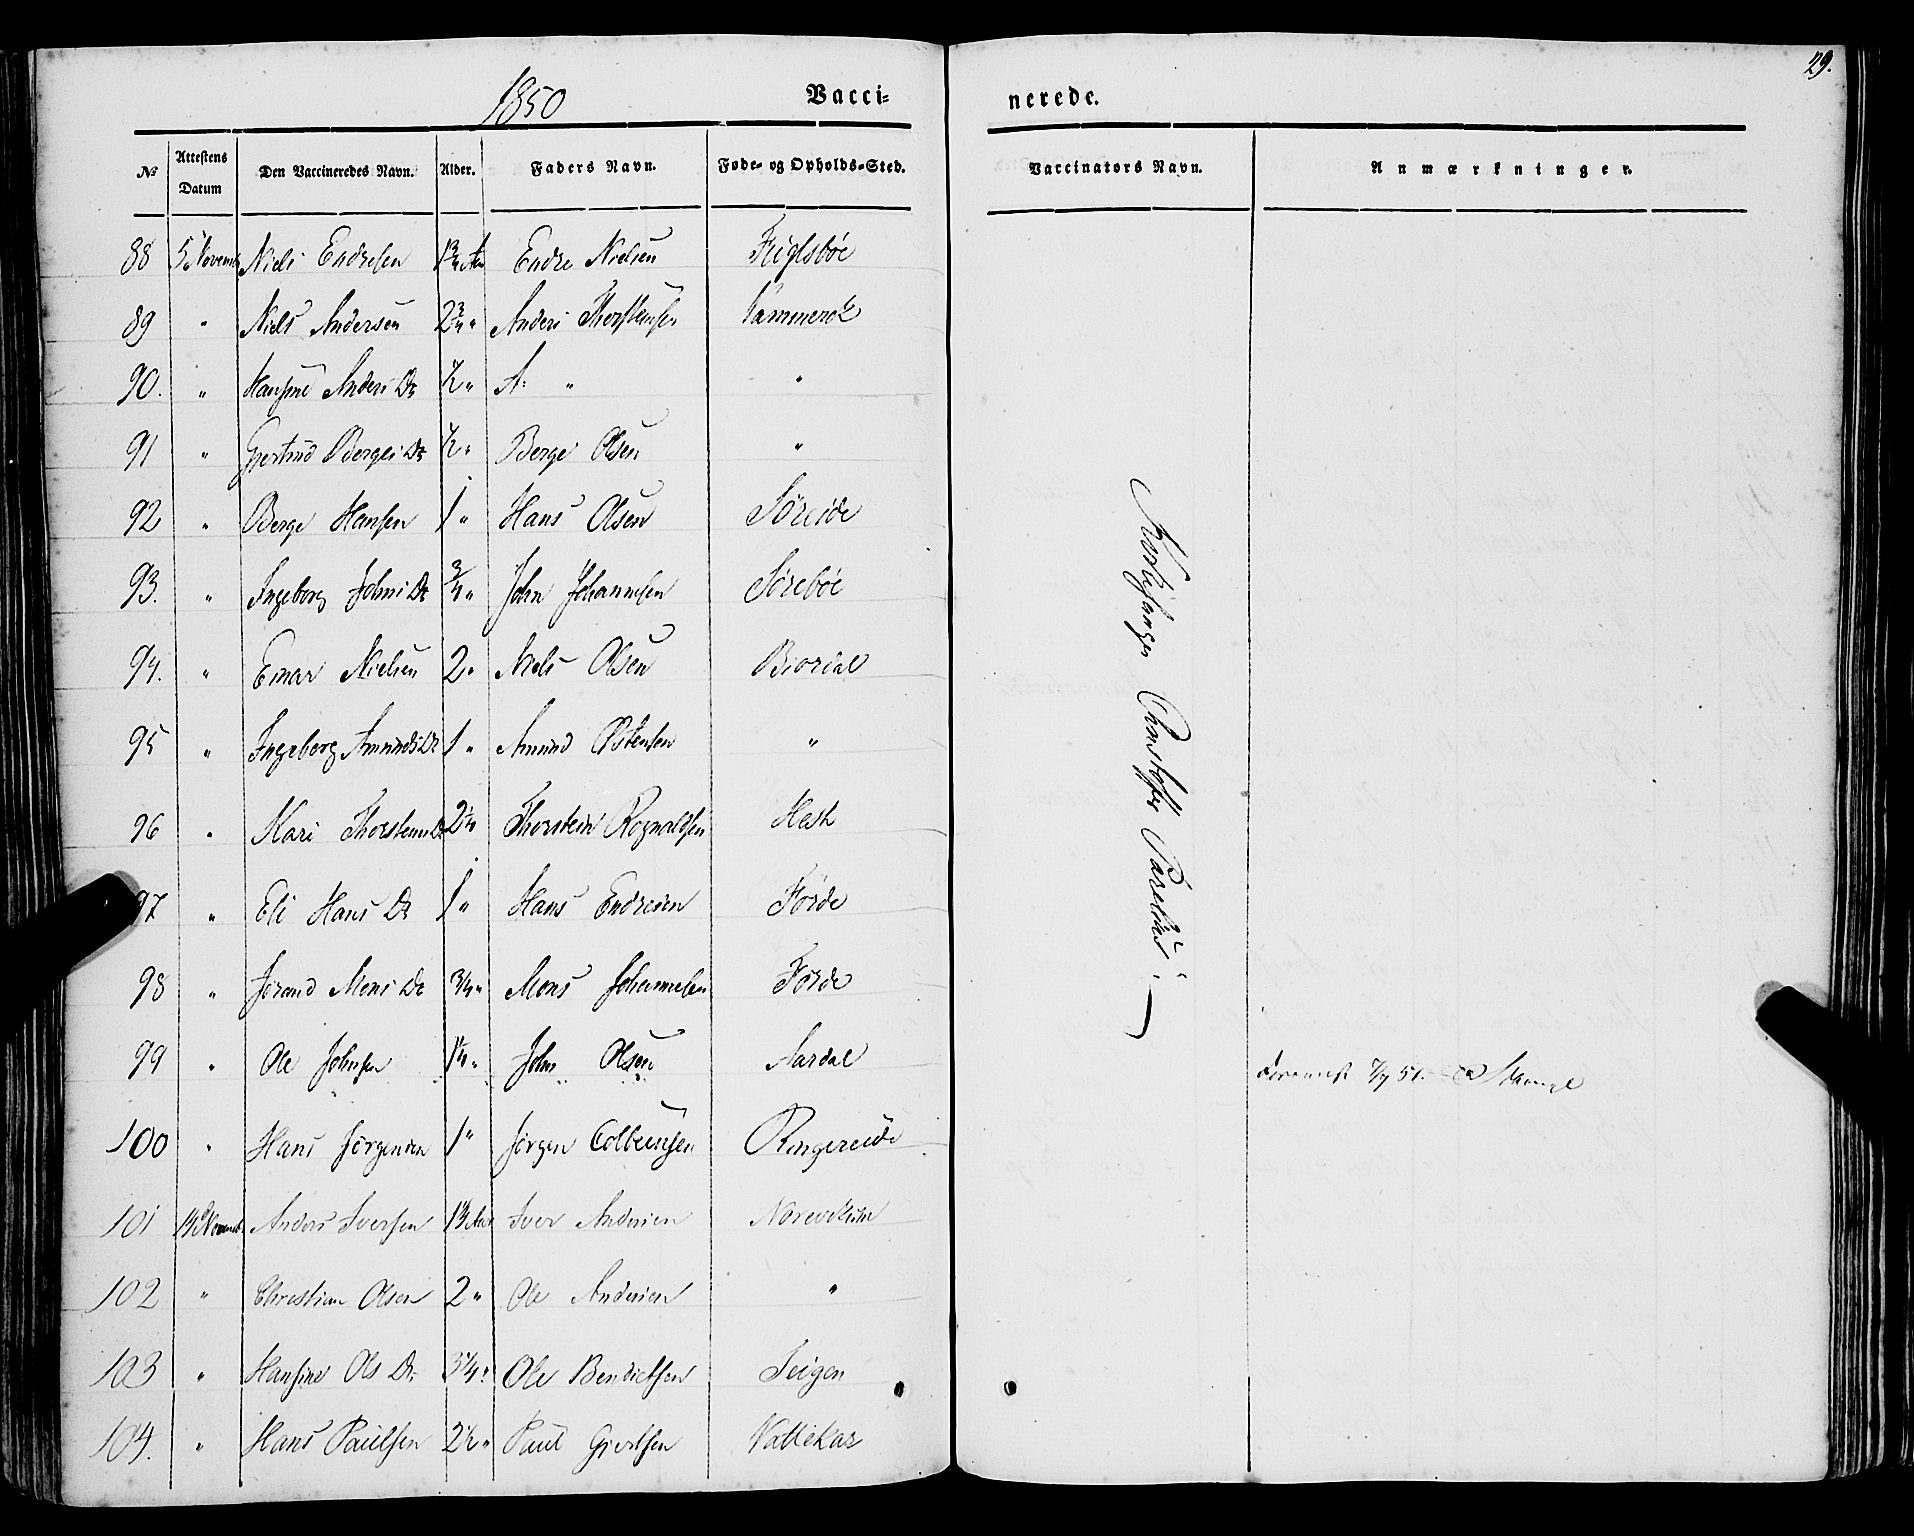 29.
1850
Vacci-
nerede.
No Attestens Datum Den Vaccineredes Navn. Alder. Faders Navn. Føde- og Opholds-Sted. Vaccinators Navn. Anmærkninger.
88 5 Novemb Niels Endresen Endre Nielsen
89 " Niels Andersen 2¾ " Anders Thorstensen
90. " Hansine Anders Dr ½ " A: " "
91 " Gjertrud Berges Dr ½ " Berge Olsen "
92 " Berge Hansen 1 " Hans Olsen Søreide
93. " Ingeborg Johns Dr ¾ " John Johannesen Sørebøe
94. " Einar Nielsen 2 " Niels Olsen Biordal
95 " Ingeborg Amunds Dr 1 " Amund Østensen "
96 " Kari Thorsteins Dr Thorstein Rognaldsen
97 " Eli Hans Dr 1 " Hans Endresen Førde
98 " Jorand Mons Dr ¾ " Mons Johannesen Førde
99 " Ole Johnsen 1¼ " John Olsen Aardal
100 " Hans Jørgensen 1 " Jørgen Colbensen Ringereide
101 Novemb Anders Iversen Iver Andersen
102 " Christian Olsen 2 " Ole Andersen "
103 " Hansine Ols Dr. 3¼ " Ole Bendictsen Teigen
104. " Hans Paulsen 2½ " Paul Giertsen Nattekar
Kirkesanger Christoffer
7/7 51.